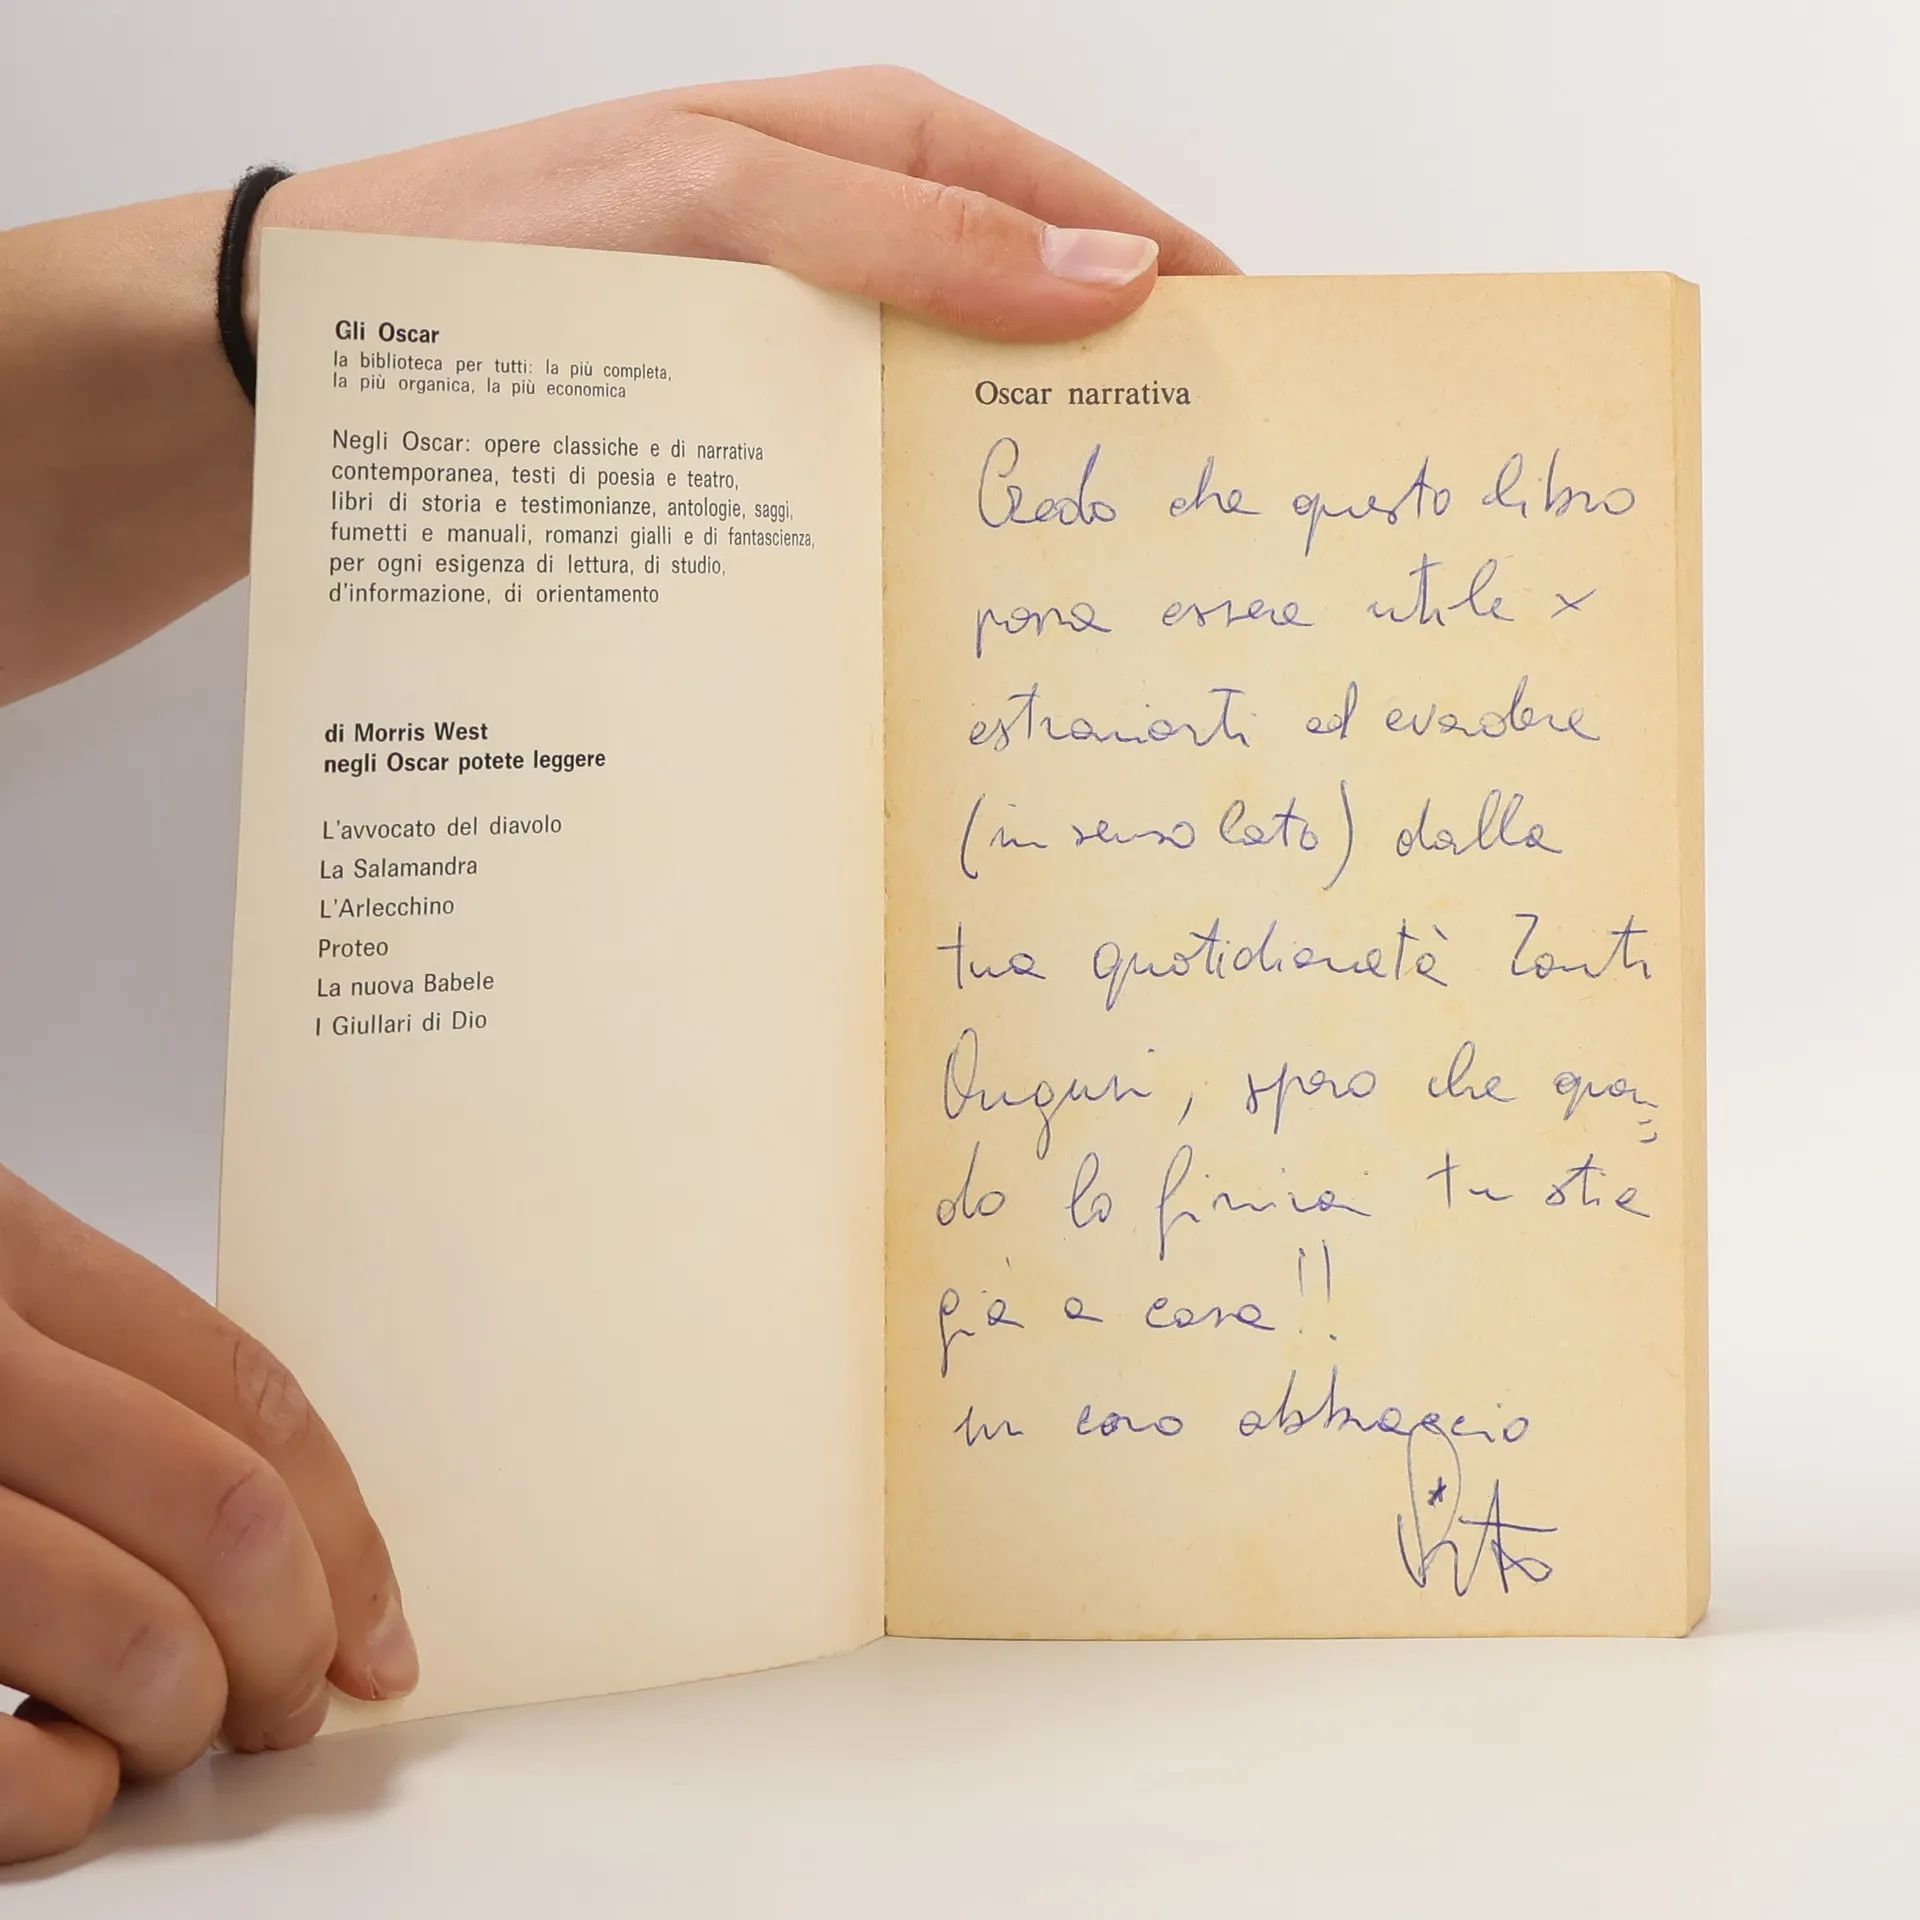 Gli Oscar
la biblioteca per tutti: la più completa,
la più organica, la più economica
Negli Oscar: opere classiche e di narrativa
contemporanea, testi di poesia e teatro,
libri di storia e testimonianze, antologie, saggi,
fumetti e manuali, romanzi gialli e di fantascienza,
per ogni esigenza di lettura, di studio,
d'informazione, di orientamento
di Morris West
negli Oscar potete leggere
L'avvocato del diavolo
La Salamandra
L'Arlecchino
Proteo
La nuova Babele
I Giullari di Dio
Oscar narrativa
Credo che questo libro
possa essere utile x
estraniarti ed evadere
(in senso lato) dalla
tua quotidianetà Tanti
Auguri, spero che quan=
do lo finirai tu stia
già a casa!!
un caro abbraccio
Vito